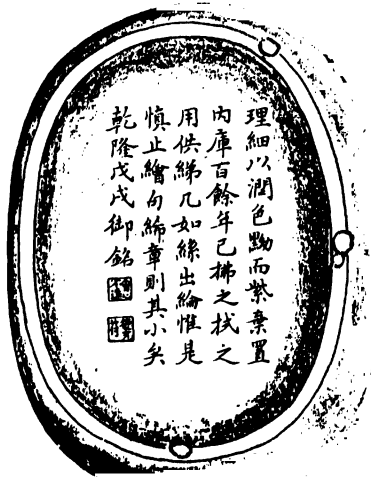 理細以潤色黝而紫棄置
内庫百餘年已拂之拭之
用供綈几如絲出綸惟是
慎止繪句絺章則其小矣
乾隆戊戌御銘